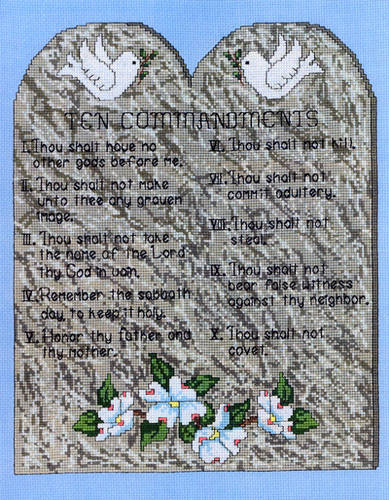 TEN COMMANDMENTS
I. Thou shalt have no
other gods before me.
II. Thou shalt not make
unto thee any graven
image.
III. Thou shalt not take
the name of the Lord
thy God in vain.
IV. Remember the sabbath
day, to keep it holy.
V. Honor thy father and
thy mother.
VI. Thou shalt not kill.
VII. Thou shalt not
commit adultery.
VIII. Thou shalt not
steal.
IX. Thou shalt not
bear false witness
against thy neighbor.
X. Thou shalt not
covet.